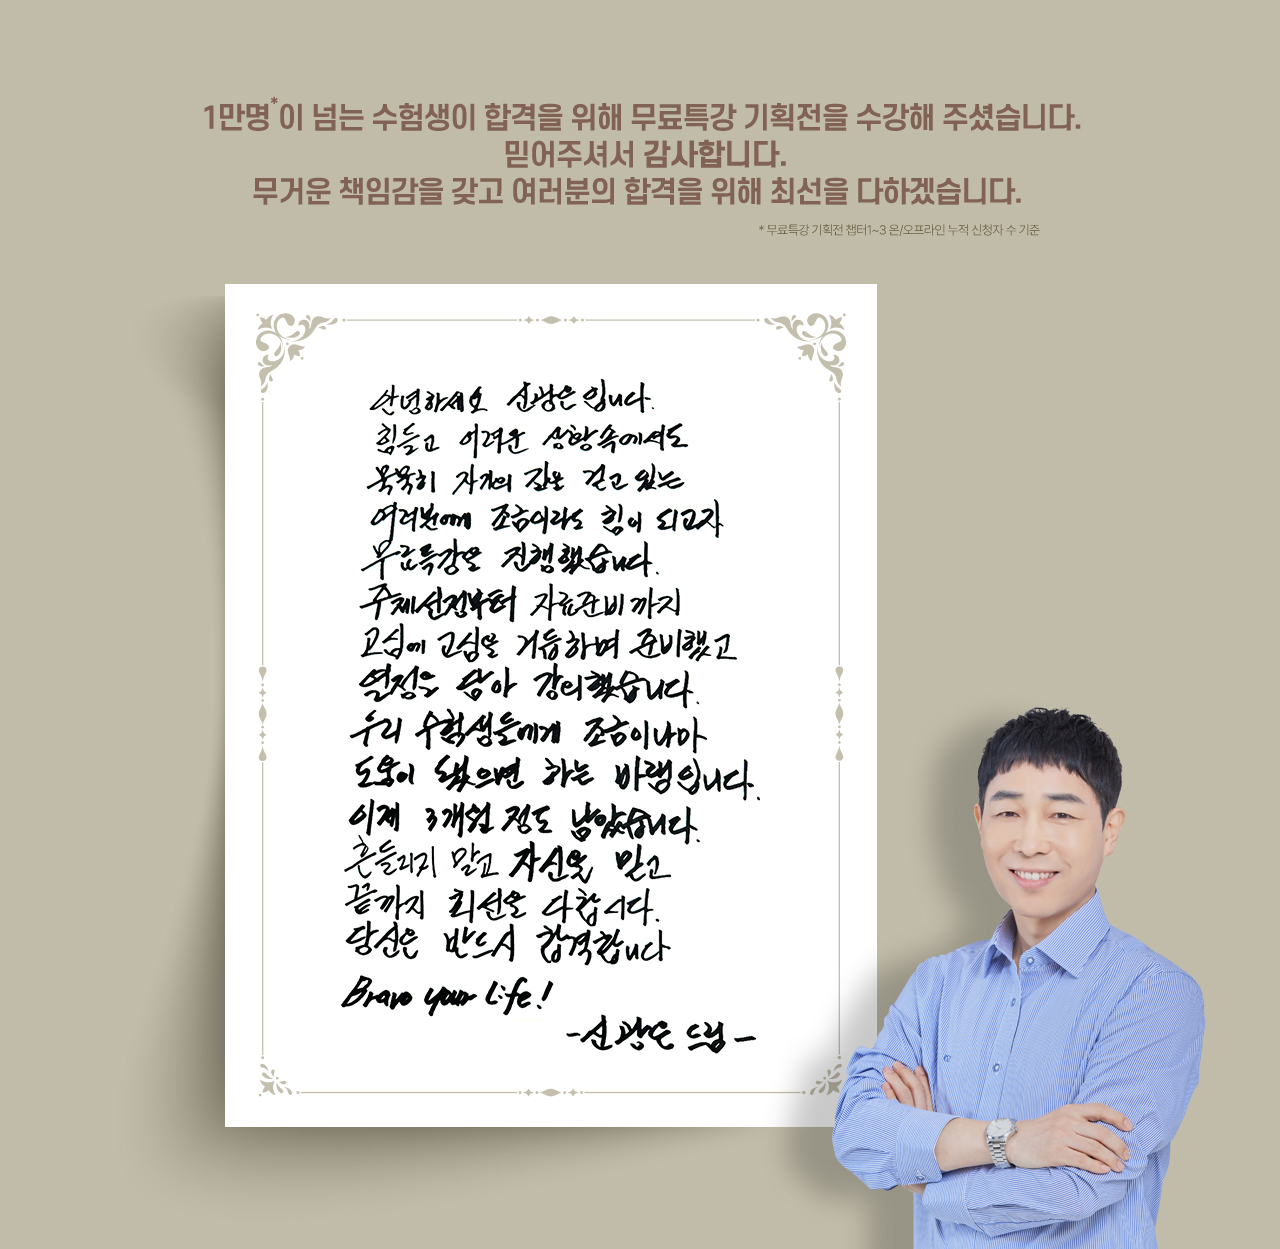 1만명*이 넘는 수험생이 합격을 위해 무료특강 기획전을 수강해 주셨습니다.
믿어주셔서 감사합니다.
무거운 책임감을 갖고 여러분의 합격을 위해 최선을 다하겠습니다.
* 무료특강 기획전 챕터1~3 온/오프라인 누적 신청자 수 기준
안녕하세요 신광은입니다.
힘들고 어려운 상황속에서도
묵묵히 자기의 길을 걷고 있는
여러분에게 조금이라도 힘이 되고자
무료특강을 진행했습니다.
주제선정부터 자료준비까지
고심에 고심을 거듭하며 준비했고
열정을 담아 강의했습니다.
우리 수험생들에게 조금이나마
도움이 됐으면 하는 바램입니다.
이제 3개월 정도 남았습니다.
흔들리지 말고 자신을 믿고
끝까지 최선을 다합시다.
당신은 반드시 합격합니다
Bravo your Life!
-신광은 드림-